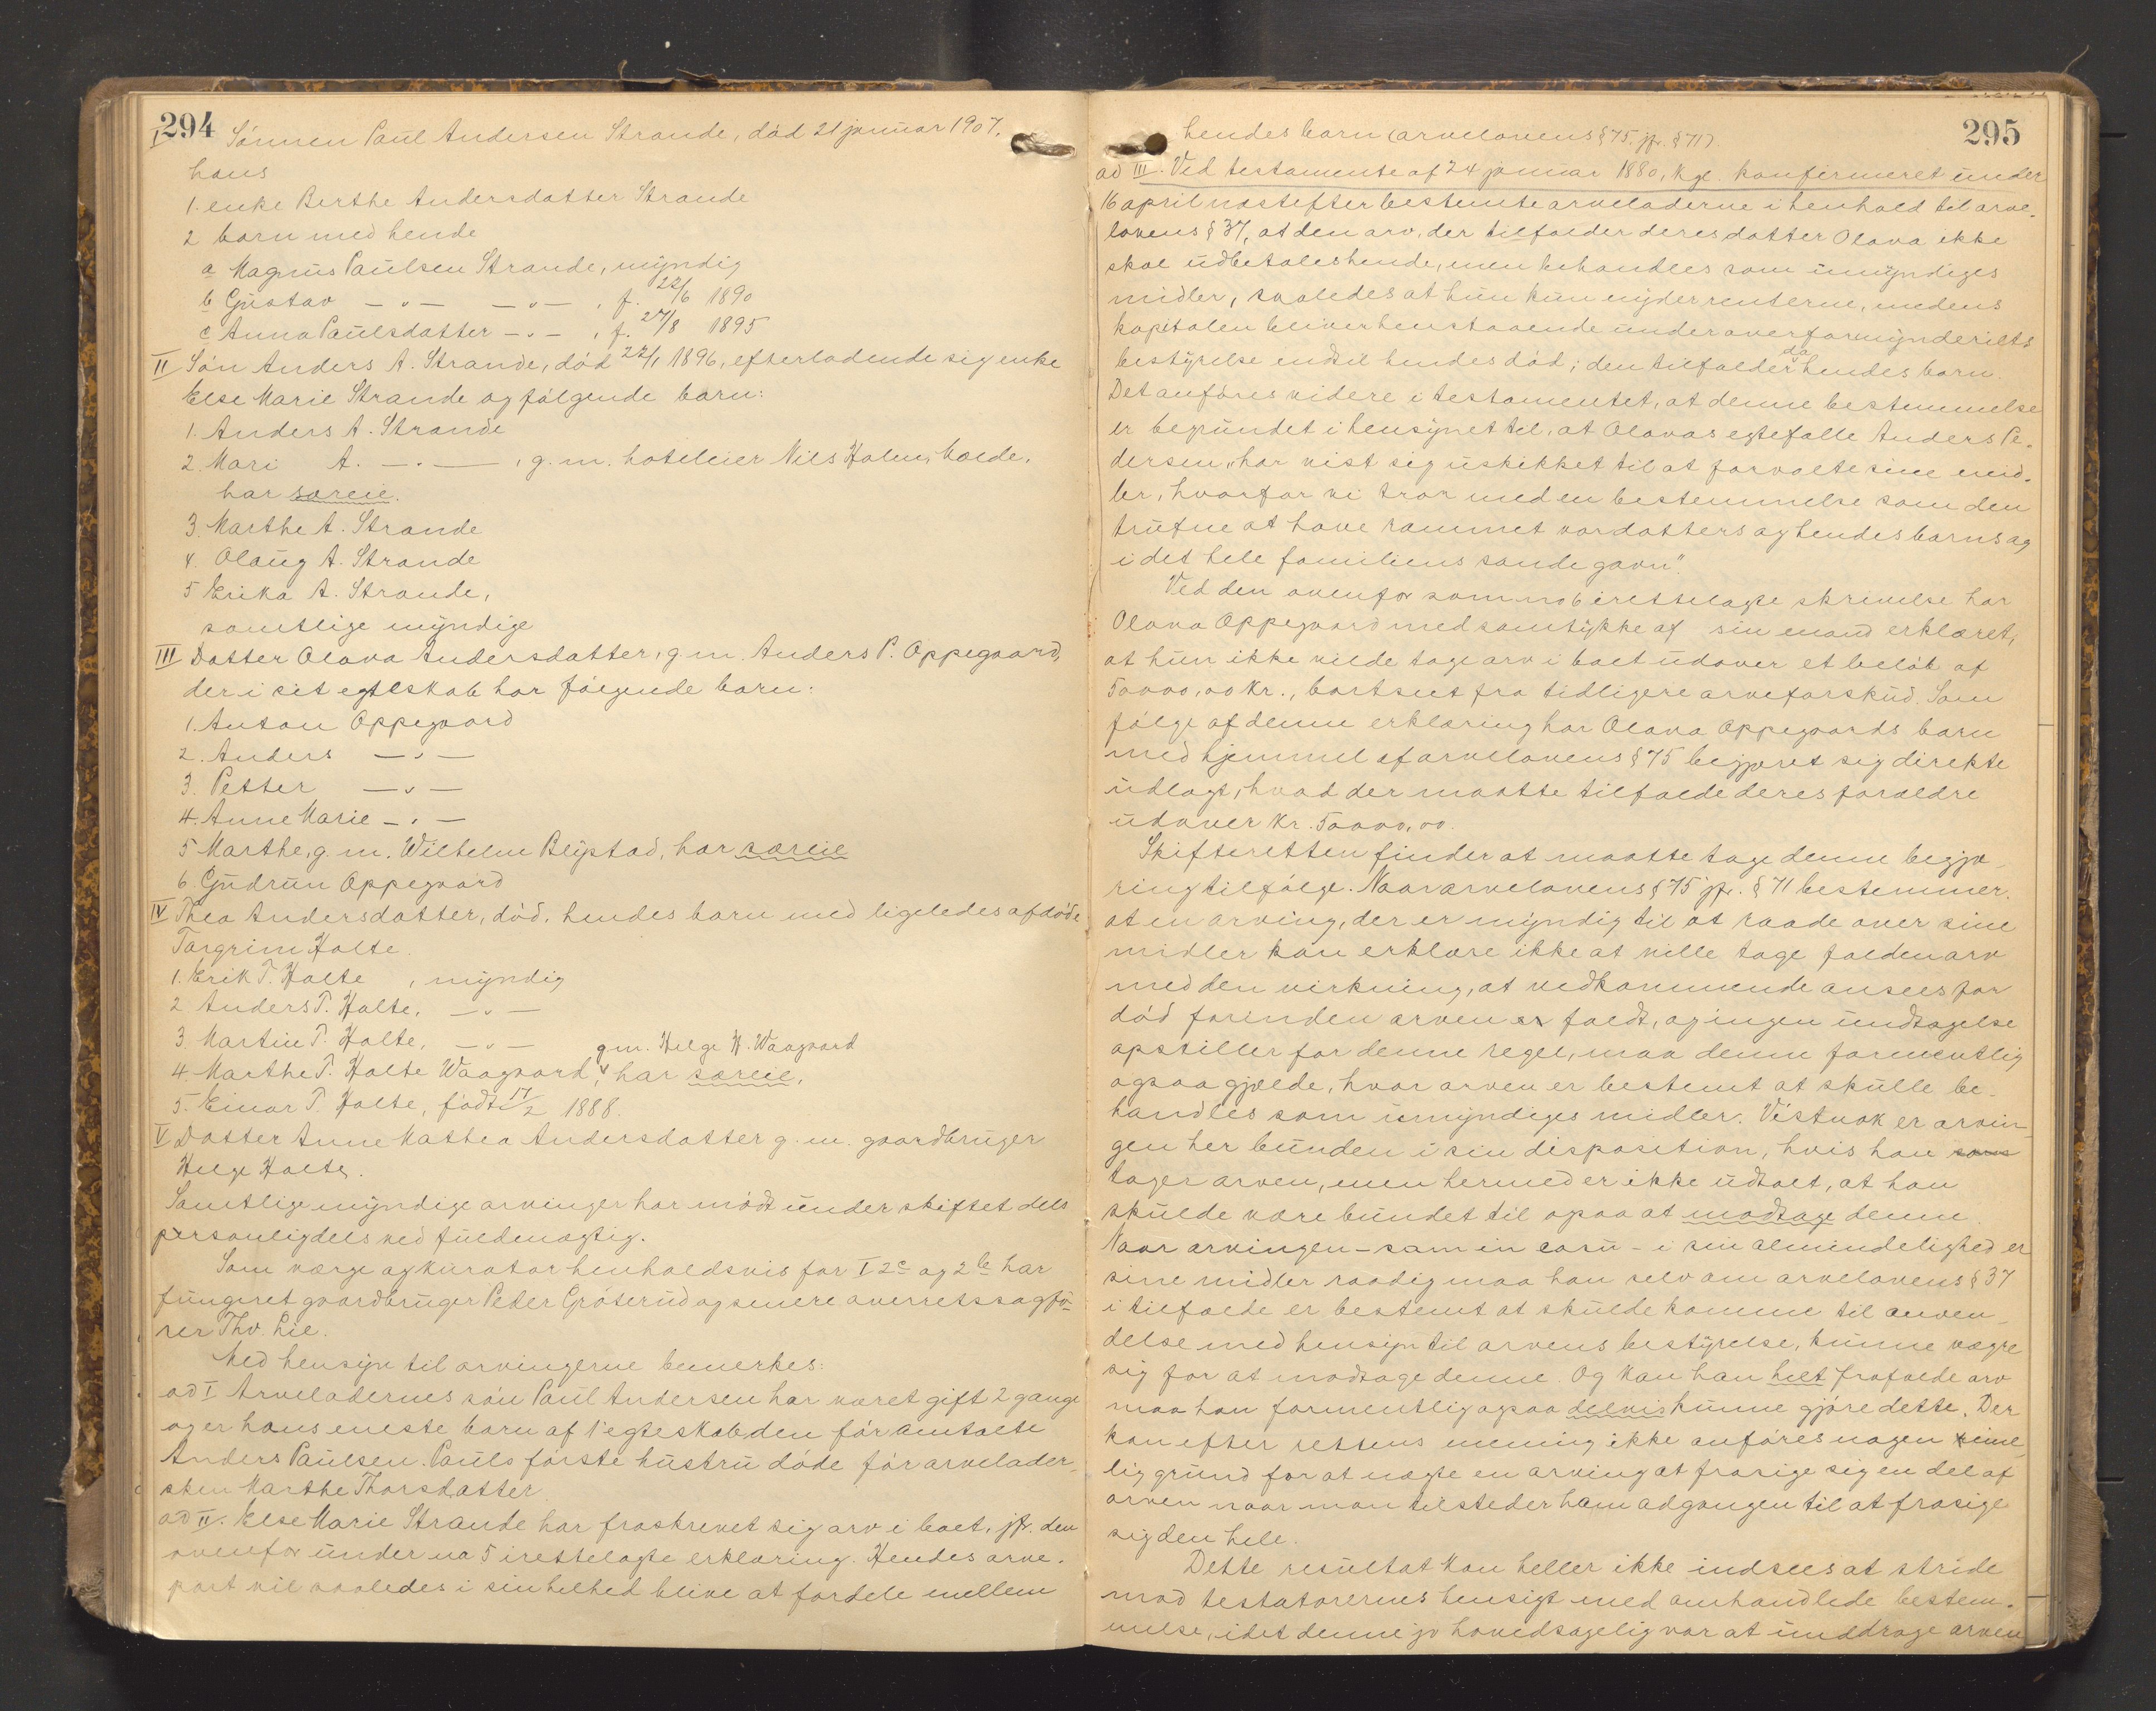 294
I Sönnen Paul Andersen Strande, död 21 januar 1907.
hans
1. enke Berthe Andersdatter Strande
2 barn med hende
a Magnus Paulsen Strande, myndig
b Gustav —〃— —〃— , f. 22/6 1890
c Anna Paulsdatter —〃— , f. 27/8 1895
II Sön Anders A. Strande, död 22/1 1896, efterladende sig enke
Else Marie Strande og fölgende barn:
1. Anders A. Strande
2. Mari A. —〃— , g.m. hoteleier Nils Holm,
har særeie.
3. Marthe A. Strande
4. Olaug A. Strande
5 Erika A. Strande,
samtlige myndige
III Datter Olava Andersdatter, g.m. Anders P. Oppegaard,
der i sit egteskab har fölgende barn:
1. Anton Oppegaard
2. Anders —〃—
3. Petter —〃—
4. Anne Marie —〃—
5 Marthe, g.m. Wilhelm, har særeie
6 Gudrun Oppegaard
IV Thea Andersdatter, död, hendes barn med ligeledes afdöde
Torgrim Holte.
1. Erik T. Holte , myndig
2 Anders T. Holte, —〃—
3 Martin T. Holte, —〃— gm. Helge H. Waagaard
4. Marthe T. Holte Waagaard, har særeie.
5. Einar T. Holte, födt 17/2 1888.
V Datter Anne Mathea Andersdatter g.m. gaardbruger
Helge Holte.
Samtlige myndige arvinger har mödt under skiftet dels
personlig dels ved fuldmægtig.
Som værge og kurator henholdsvis for I 2c og 2b har
fungeret gaardbruger Peder Gröterud og senere overretssagfö-
rer Thv. Lie.
Med hensyn til arvingerne bemerkes:
ad I Arveladernes sön Paul Andersen har været gift 2 gange
og er hans eneste barn af 1' egteskab den för omtalte
Anders Paulsen. Pauls förste hustru döde för arvelader-
sken Marthe Thorsdatter
ad II. Else Marie Strande har fraskrevet sig arv i boet, jfr. den
ovenfor under no 5 irettelagte erklæring. Hendes arve-
part vil saaledes i sin helhed blive at fordele mellem
295
hendes barn (arvelovens § 75, jfr. § 71).
ad III. Ved testamente af 24 januar 1880, kgl. konfirmeret under
16 april næstefter bestemte arveladerne i henhold til arve-
lovens § 37, at den arv, der tilfalder deres datter Olava ikke
skal udbetales hende, men behandles som umyndiges
midler, saaledes at hun kun nyder renterne, medens
kapitalen bliver henstaaende under overformynderiets
bestyrelse indtil hendes död; den tilfalder da hendes barn.
Det anföres videre i testamentet, at denne bestemmelse
er begrundet i hensynet til, at Olavas egtefælle Anders Pe-
dersen „har vist sig uskikket til at forvalte sine mid-
ler, hvorfor vi tror med en bestemmelse som den
trufne at have rammet vor datters og hendes barns og
i det hele familiens sande gavn".
Ved den ovenfor som no 6 irettelagte skrivelse har
Olava Oppegaard med samtykke af sin mand erklæret,
at hun ikke vilde tage arv i boet udover et belöb af
50000,00 kr., bortset fra tidligere arveforskud. Som
fölge af denne erklæring har Olava Oppegaards barn
med hjemmel af arvelovens § 75 begjæret sig direkte
udlagt, hvad der maatte tilfalde deres forældre
udover kr. 50000,00.
Skifteretten finder at maatte tage denne begjæ-
ring tilfölge. Naar arvelovens § 75 jfr. § 71 bestemmer,
at en arving, der er myndig til at raade over sine
midler kan erklære ikke at ville tage falden arv
med den virkning, at vedkommende ansees for
död forinden arven er faldt, og ingen undtagelse
opstiller for denne regel, maa denne formentlig
ogsaa gjælde, hvor arven er bestemt at skulle be-
handles som umyndiges midler. Vistnok er arvin-
gen her bunden i sin disposition, hvis han
tager arven, men hermed er ikke udtalt, at han
skulde være bundet til ogsaa at modtage denne.
Naar arvingen - som in casu - i sin almindelighed er
sine midler raadig maa han selv om arvelovens § 37
i tilfælde er bestemt at skulde komme til anven-
delse med hensyn til arvens bestyrelse, kunne vægre
sig for at modtage denne. Og kan han helt frafalde arv
maa han formentlig ogsaa delvis kunne gjöre dette. Der
kan efter rettens mening ikke anföres nogen rime-
lig grund for at nægte en arving at frasige sig en del af
arven naar man tilsteder ham adgangen til at frasige
sig den hele.
Dette resultat kan heller ikke indsees at stride
mod testatorernes hensigt med omhandlede bestem-
melse, idet denne jo hovedsagelig var at unddrage arven